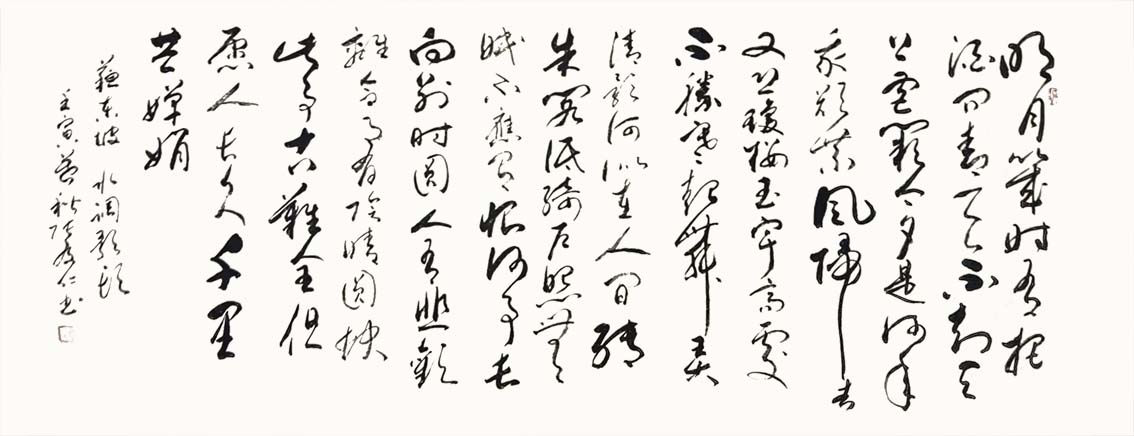 明月幾时有把
酒问青天不知天
上宫阙今夕是何年
我欲乘風歸去
又恐瓊楼玉宇高處
不勝寒起舞弄
清影何似在人间转
朱阁低绮户照無
眠不應有恨何事长
向别时圆人有悲歡
離合月有陰晴圆缺
此事古難全但
愿人长久千里
共嬋娟
蘇东坡 水调歌头
壬寅暮秋 仁书